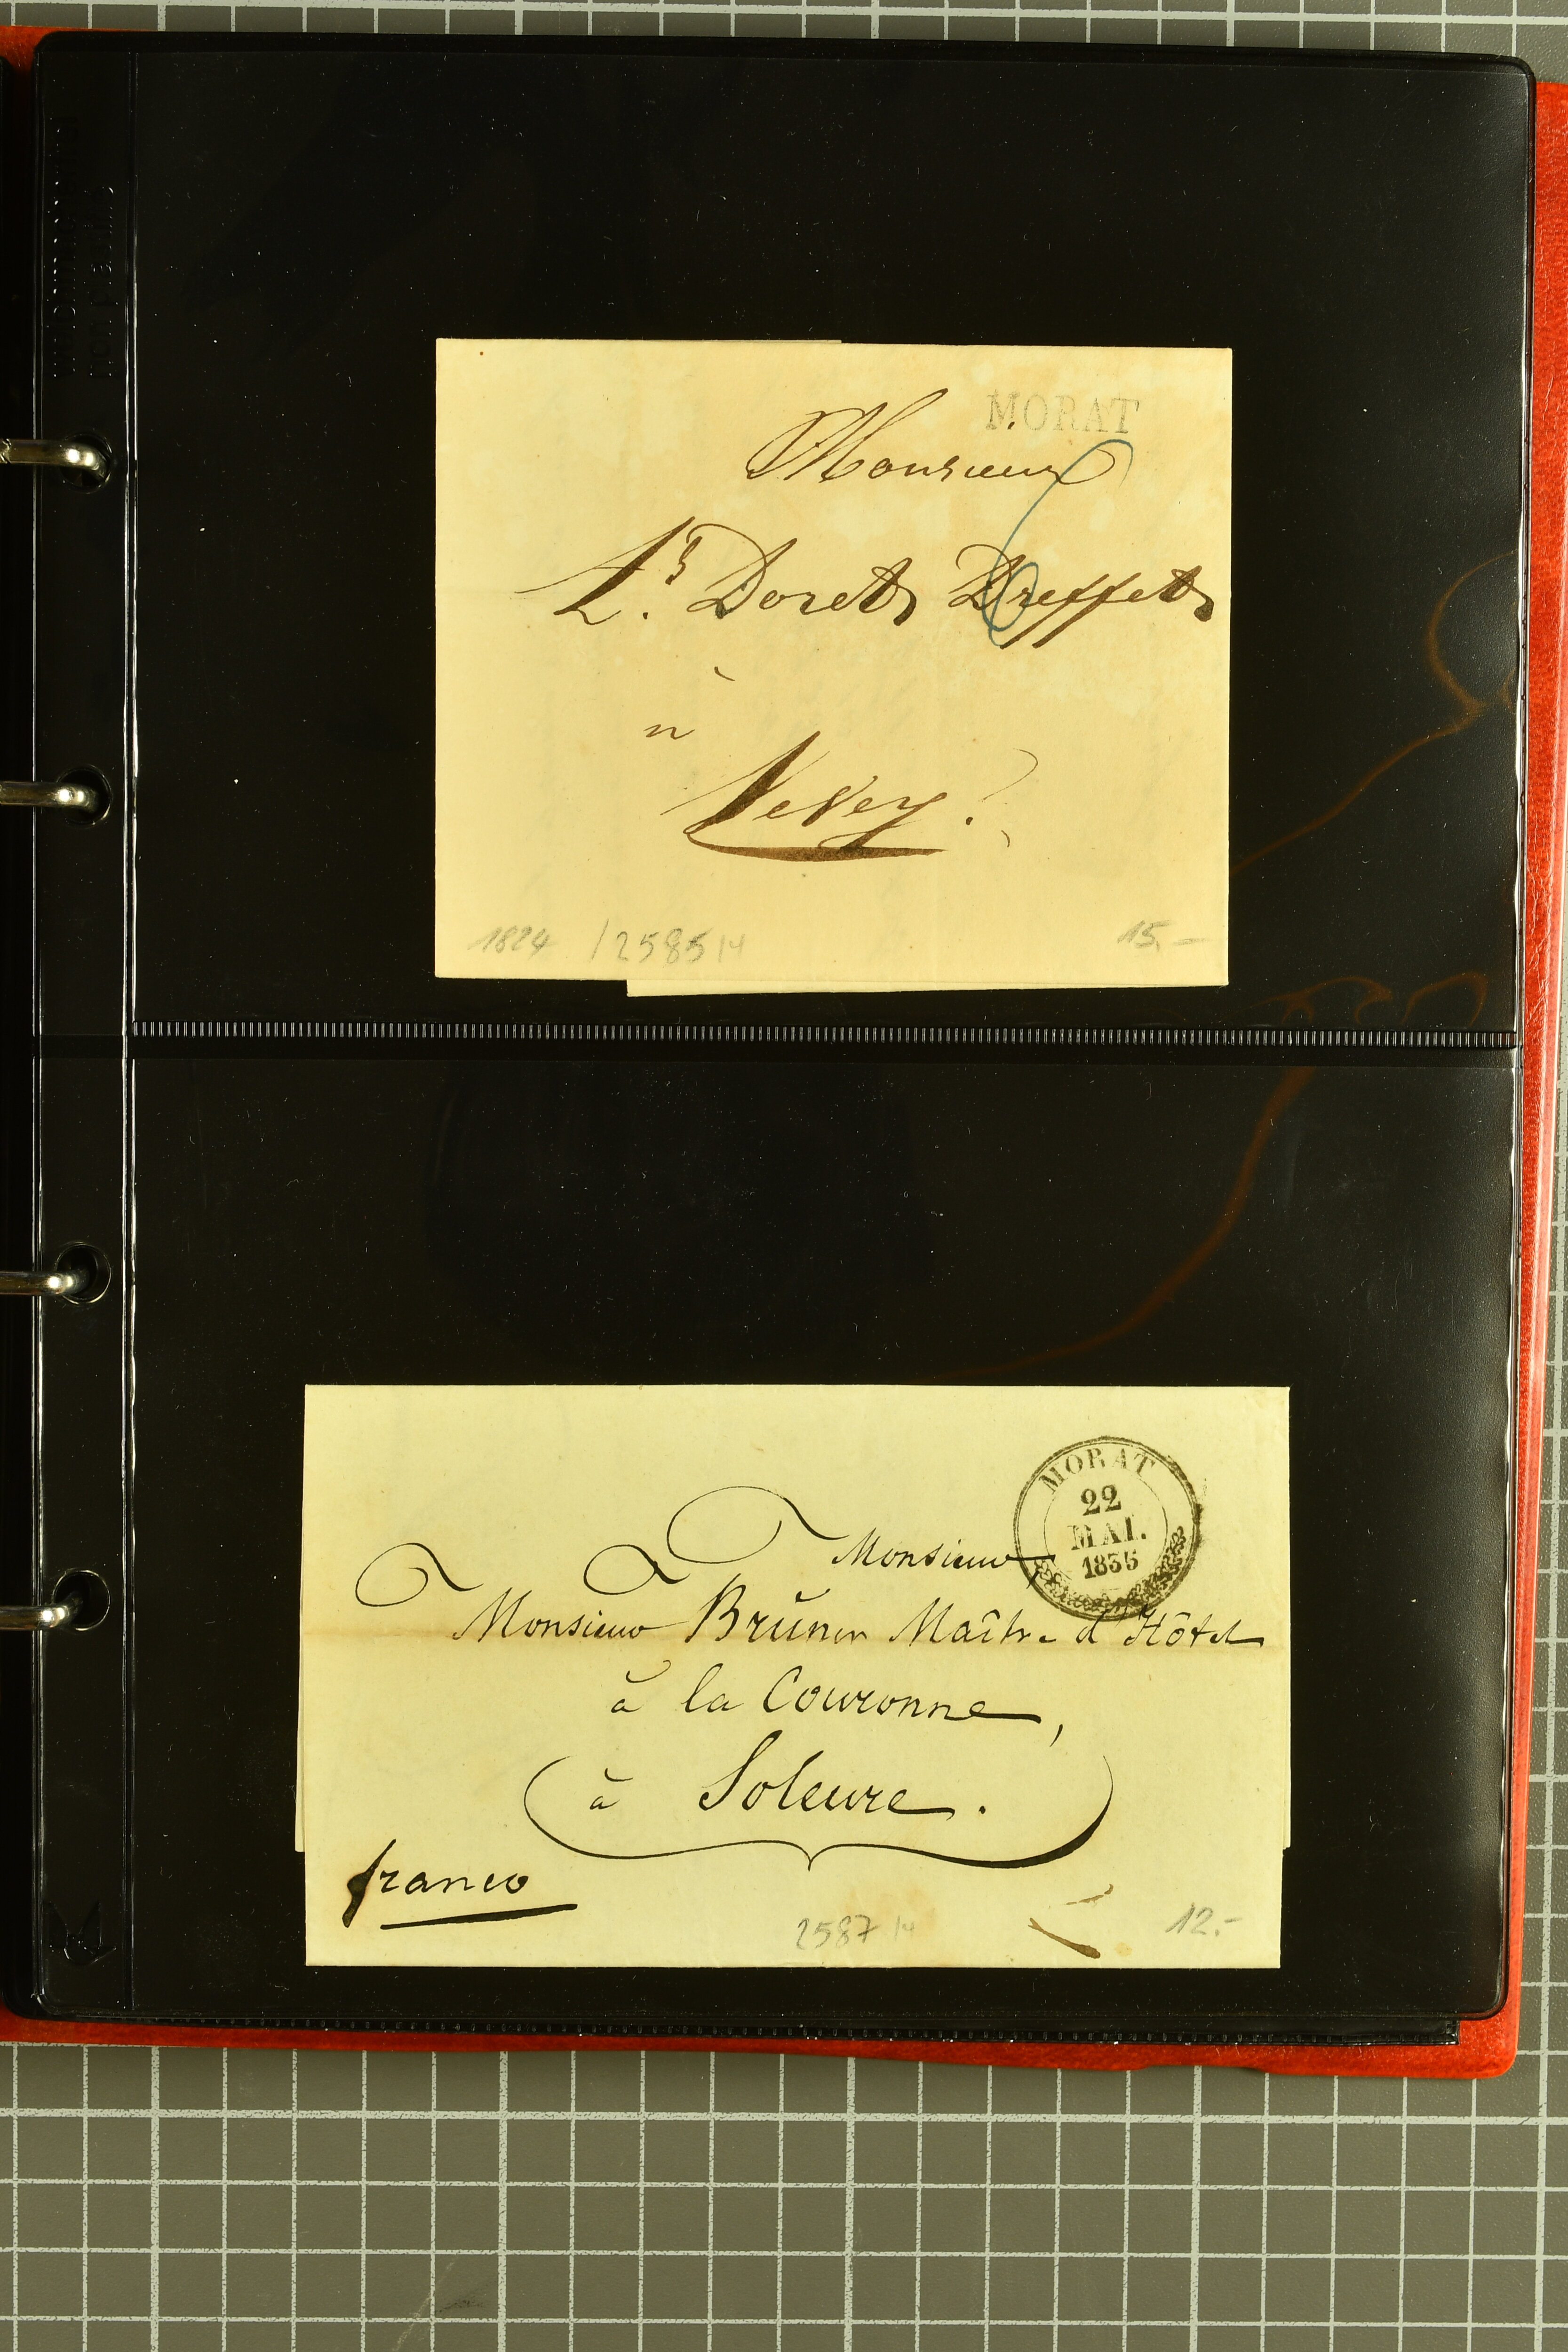 MORAT
Monsieur
Ls. Doret Dreffet
6
à
Vevey.
1824 /2585/4 15.-
MORAT
22
MAI.
1835
Monsieur
Monsieur Brŭner Maître d'Hôtel
à la Couronne,
à Soleure.
franco
2587/4 12.-